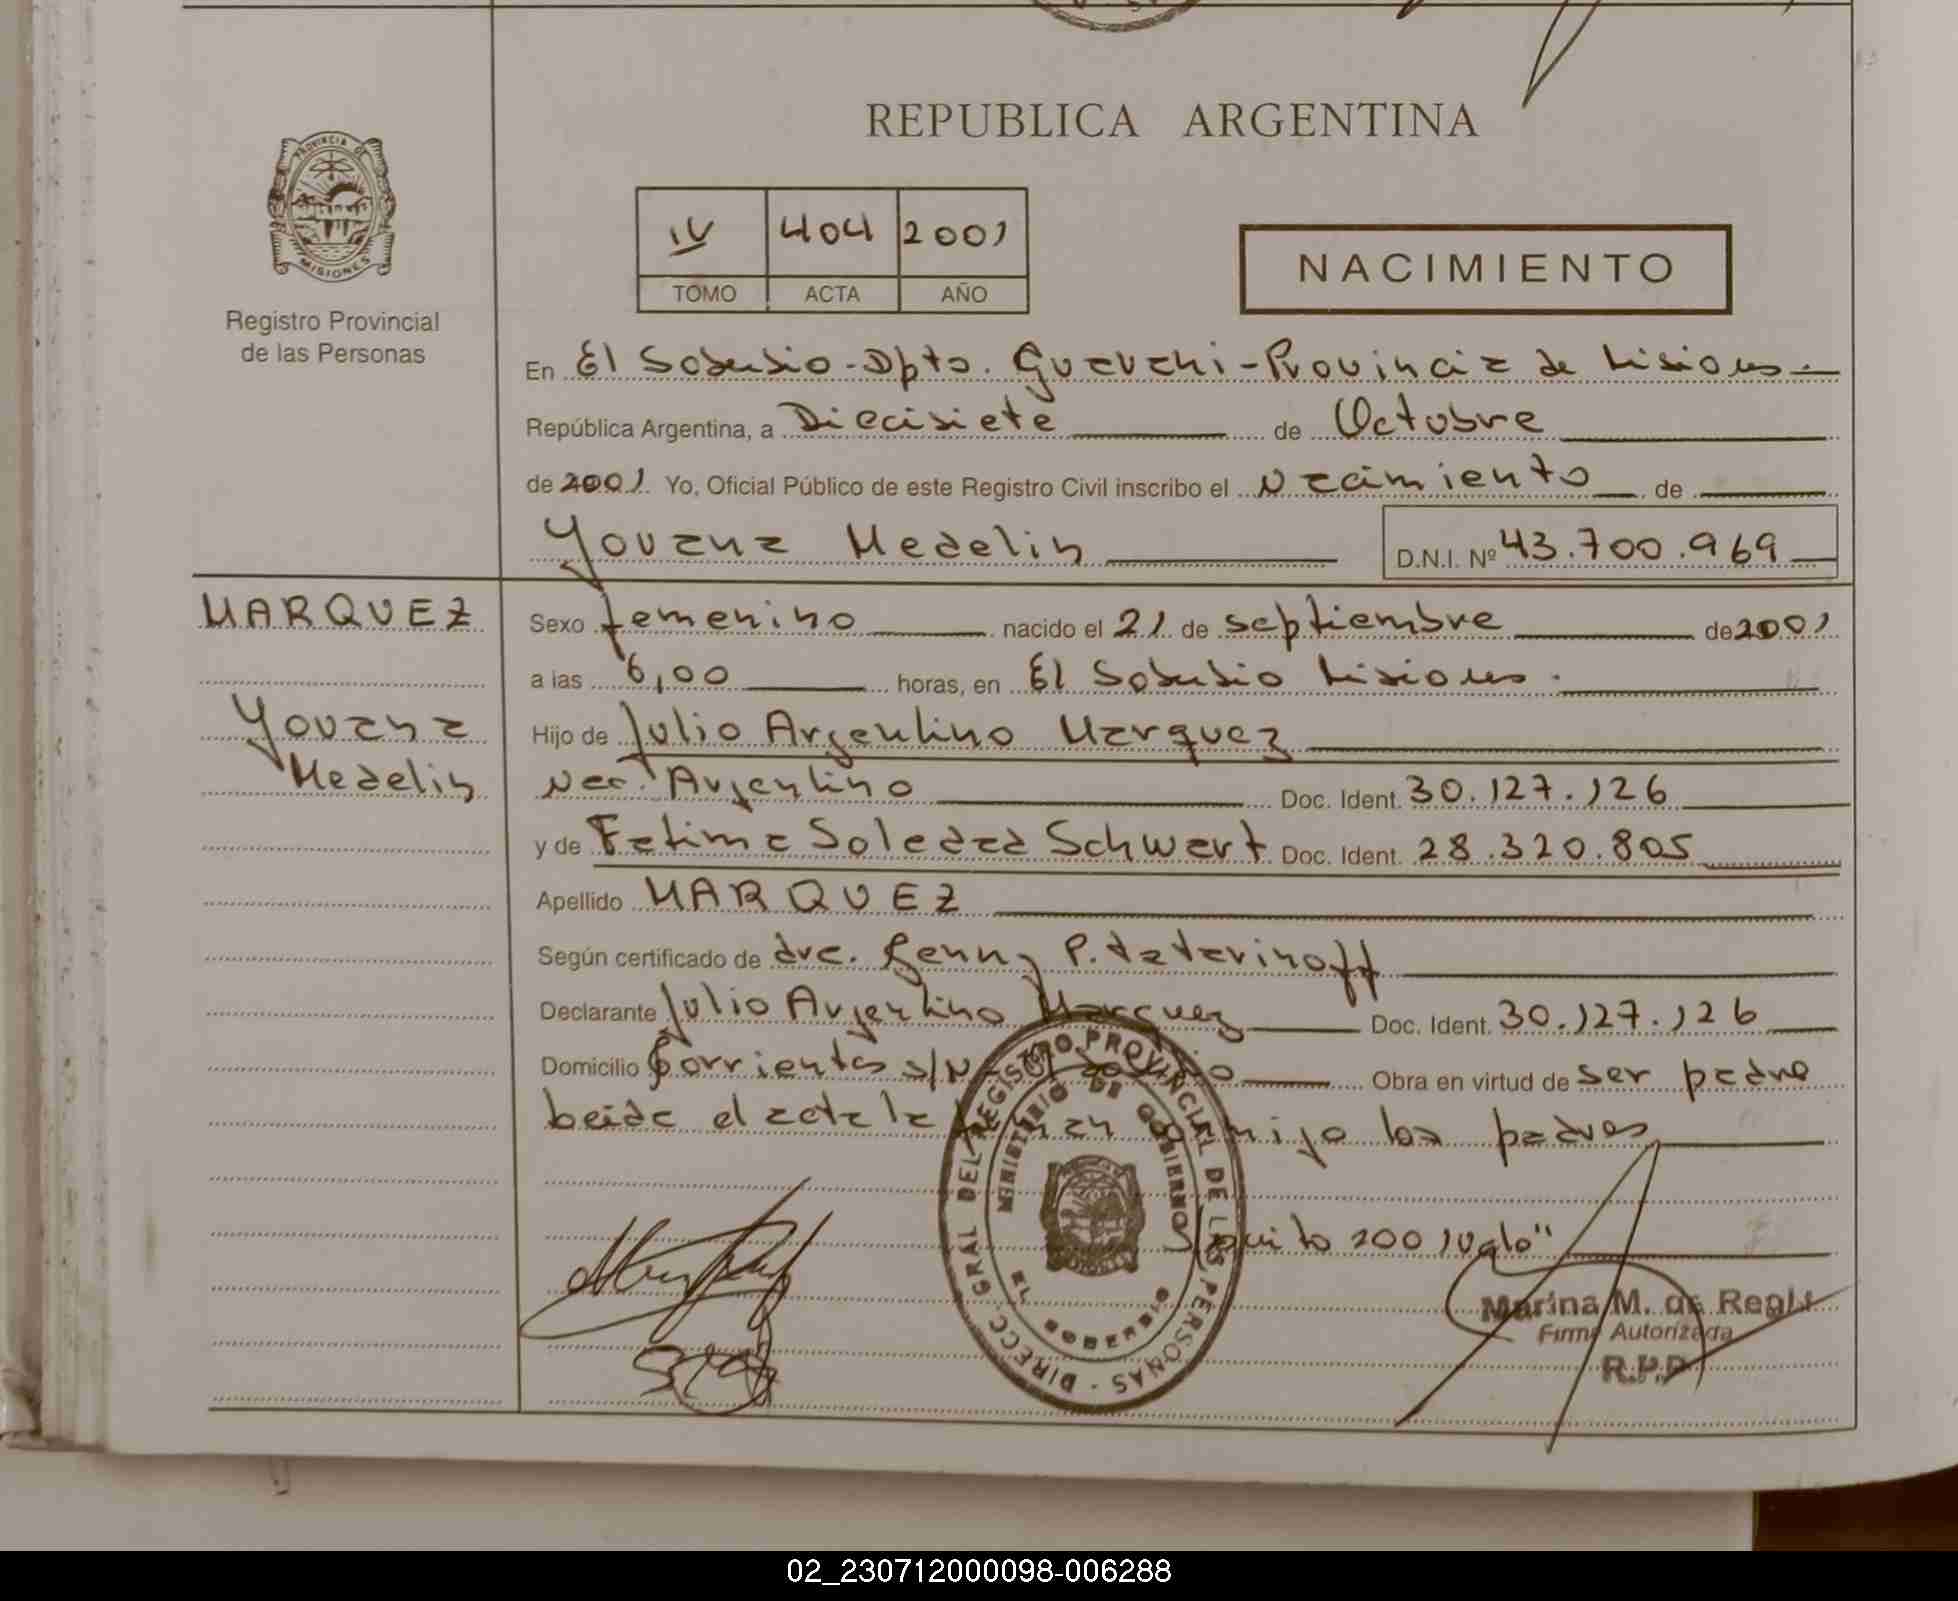 REPUBLICA ARGENTINA
PROVINCIA DE
MISIONES
Registro Provincial
de las Personas
IV 404 2001
TOMO ACTA AÑO
NACIMIENTO
En El Soberbio - Dpto. Guarani - Provincia de Misiones.
República Argentina, a Diecisiete de Octubre
de 2001 Yo, Oficial Público de este Registro Civil inscribo el Nacimiento de
Yovana Madelin D.N.I. Nº 43.700.969
MARQUEZ
Yovana
Madelin
Sexo femenino nacido el 21 de septiembre de 2001
a las 6,00 horas, en El Soberbio Misiones.
Hijo de Julio Argentino Marquez
Nac. Argentino Doc. Ident. 30.127.126
y de Fatima Soledad Schwert Doc. Ident. 28.320.805
Apellido MARQUEZ
Según certificado de dra. P.
Declarante Julio Argentino Marquez Doc. Ident. 30.127.126
Domicilio Corrientes s/N Obra en virtud de ser padre
leida el acta la conmigo los padres
2001 vale"
DIRECC. GRAL DEL REGISTRO PROVINCIAL DE LAS PERSONAS
MINISTERIO DE GOBIERNO
EL SOBERBIO
Marina M. de
Firma Autorizada
R.P.P.
02_230712000098-006288